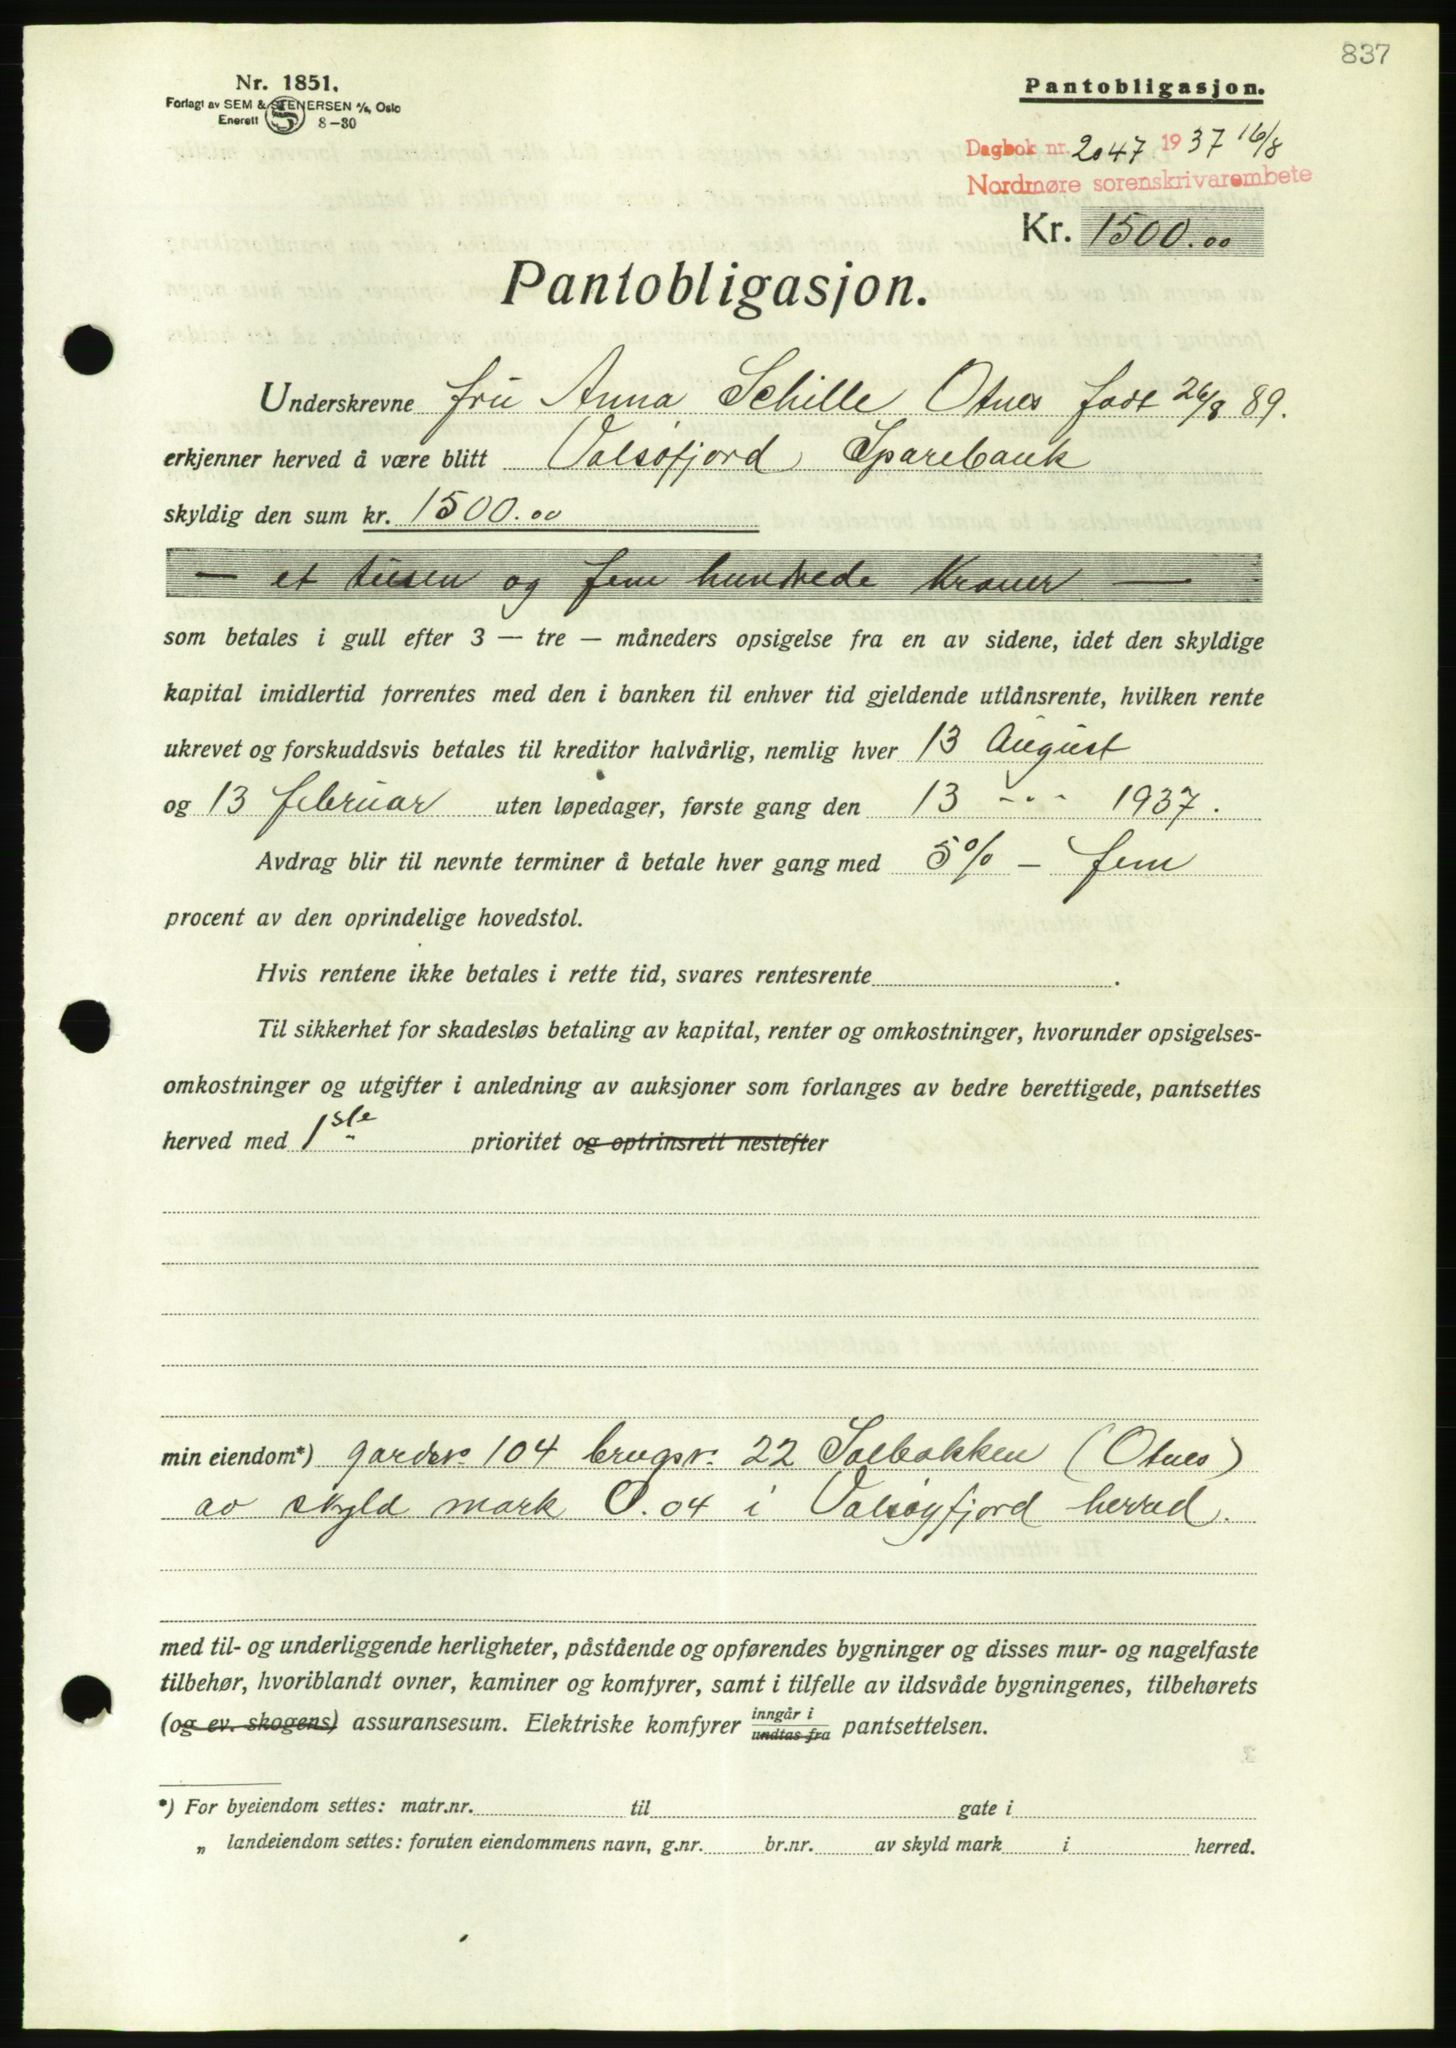 837
Nr. 1851.
Forlagt av SEM & STENERSEN A/s, Oslo
Enerett 8-30
Pantobligasjon.
Dagbok nr. 2047 1937 16/8
Nordmøre sorenskrivarembete
Kr. 1500.00
Pantobligasjon.
Underskrevne fru Anna Schille Otnes født 26/8 89.
erkjenner herved å være blitt Valsøfjord Sparebank
skyldig den sum kr. 1500.00
— et tusen og fem hundrede Kroner —
som betales i gull efter 3 — tre — måneders opsigelse fra en av sidene, idet den skyldige
kapital imidlertid forrentes med den i banken til enhver tid gjeldende utlånsrente, hvilken rente
ukrevet og forskuddsvis betales til kreditor halvårlig, nemlig hver 13 August
og 13 februar uten løpedager, første gang den 13 - " - 1937.
Avdrag blir til nevnte terminer å betale hver gang med 5% — fem
procent av den oprindelige hovedstol.
Hvis rentene ikke betales i rette tid, svares rentesrente .
Til sikkerhet for skadesløs betaling av kapital, renter og omkostninger, hvorunder opsigelses-
omkostninger og utgifter i anledning av auksjoner som forlanges av bedre berettigede, pantsettes
herved med 1ste prioritet og optrinsrett nestefter
min eiendom*) gardsnr. 104 brugsnr. 22 Solbakken (Otnes)
av skyld mark 0.04 i Valsøyfjord herred.
med til- og underliggende herligheter, påstående og opførendes bygninger og disses mur- og nagelfaste
tilbehør, hvoriblandt ovner, kaminer og komfyrer, samt i tilfelle av ildsvåde bygningenes, tilbehørets
(og ev. skogens) assuransesum. Elektriske komfyrer inngår i undtas fra pantsettelsen.
*) For byeiendom settes: matr.nr. til gate i
„ landeiendom settes: foruten eiendommens navn, g.nr. br.nr. av skyld mark i herred.